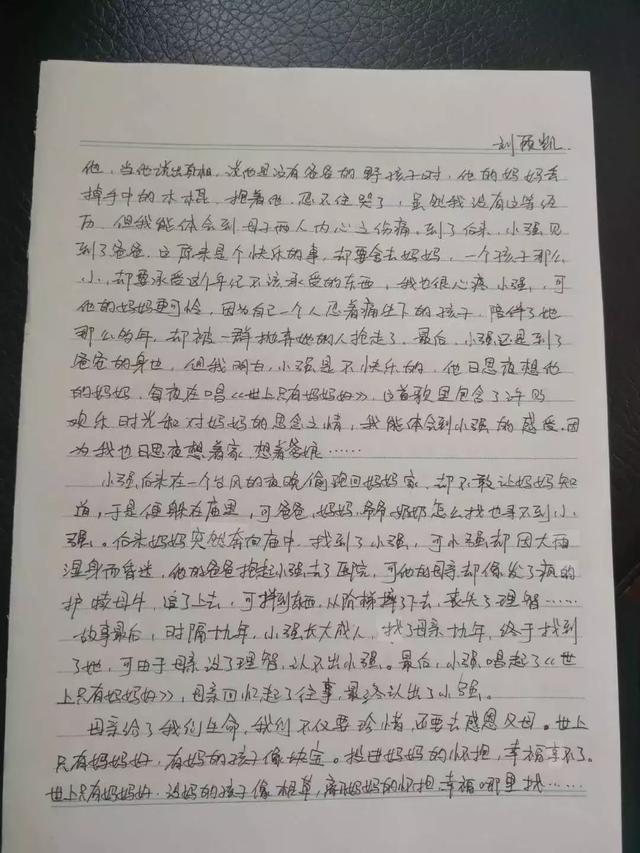 刘硕凯.
他,当他说出真相,说他是没有爸爸的野孩子时,他的妈妈丢
掉手中的木棍,抱着他,忍不住哭了,虽然我没有这等经
历,但我能体会到母子两人内心之伤痛,到了后来,小强见
到了爸爸,这原来是个快乐的事,却要舍去妈妈,一个孩子那么
小,却要承受这个年纪不该承受的东西,我也很心疼小强,可
他的妈妈更可怜,因为自己一个人忍着痛生下的孩子,陪伴了她
那么多年,却被一群抛弃她的人抢走了。最后,小强还是到了
爸爸的身边,但我明白,小强是不快乐的,他日思夜想他
的妈妈,每夜在唱《世上只有妈妈好》,这首歌里包含了许多
欢乐时光和对妈妈的思念之情,我能体会到小强的感受,因
为我也日思夜想着家,想着爹娘……
小强后来在一个台风的夜晚偷跑回妈妈家,却不敢让妈妈知
道,于是便躲在庙里,可爸爸,妈妈,爷爷奶奶怎么找也寻不到小
强。后来妈妈突然奔向庙中,找到了小强,可小强却因大雨
湿身而昏迷,他的爸爸抱起小强去了医院,可他的母亲却像发了疯的
护犊母牛,追了上去,可拌到东西,从阶梯摔了下去,丧失了理智……
故事最后,时隔十九年,小强长大成人,找了母亲十九年,终于找到
了她,可由于母亲没了理智,认不出小强。最后,小强唱起了《世
上只有妈妈好》,母亲回忆起了往事,最终认出了小强。
母亲给了我们生命,我们不仅要珍惜,还要去感恩父母。世上
只有妈妈好,有妈的孩子像块宝。投进妈妈的怀抱,幸福享不了。
世上只有妈妈好,没妈的孩子像根草,离开妈妈的怀抱,幸福哪里找……